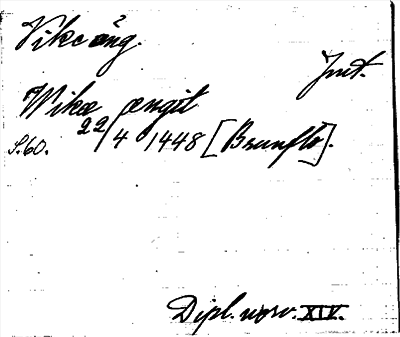 Vike äng.
Jmt.
Wikæ ængit
S. 60. 22/4 1448 [Brunflo].
Dipl. norv. XIV.